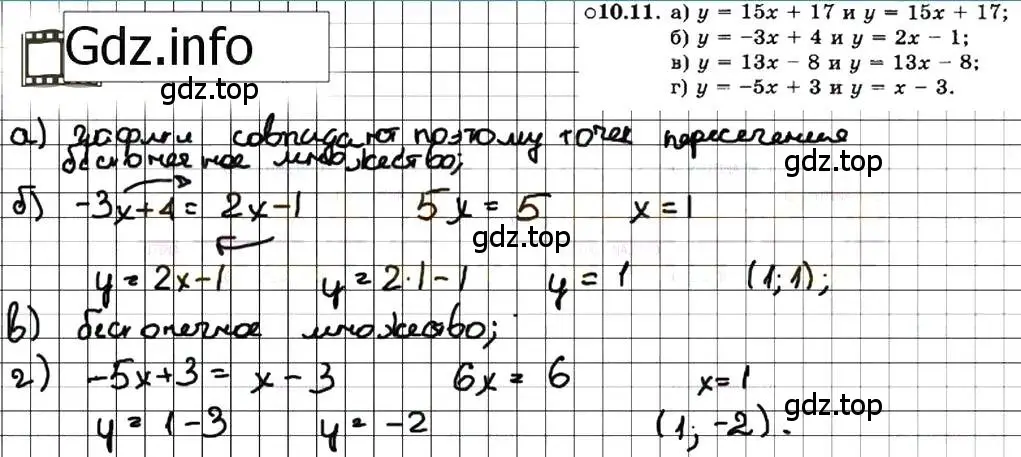 Gdz.info
gdz.top
○10.11. а) y = 15x + 17 и y = 15x + 17;
б) y = –3x + 4 и y = 2x – 1;
в) y = 13x – 8 и y = 13x – 8;
г) y = –5x + 3 и y = x – 3.
а) графики совпадают поэтому точек пересечения
бесконечное множество;
б) -3x+4 = 2x-1 5x = 5 x = 1
gdz.top
y = 2x-1 y = 2·1-1 y = 1 (1; 1);
в) бесконечное множество;
г) -5x+3 = x-3 6x = 6 x = 1
gdz.top
y = 1-3 y = -2 (1; -2).